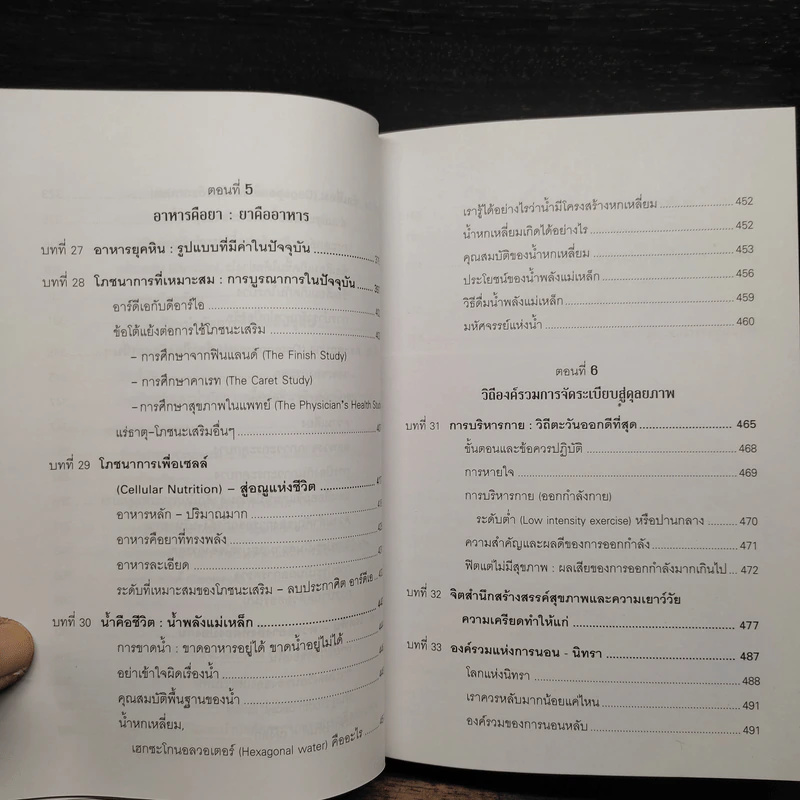 ตอนที่ 5
อาหารคือยา : ยาคืออาหาร
บทที่ 27 อาหารยุคหิน : รูปแบบที่มีค่าในปัจจุบัน
บทที่ 28 โภชนาการที่เหมาะสม : การบูรณาการในปัจจุบัน
อาร์ดีเอกับดีอาร์ไอ
ข้อโต้แย้งต่อการใช้โภชนะเสริม
– การศึกษาจากฟินแลนด์ (The Finish Study)
– การศึกษาคาเรท (The Caret Study)
– การศึกษาสุขภาพในแพทย์ (The Physician's Health
แร่ธาตุ-โภชนะเสริมอื่นๆ
บทที่ 29 โภชนาการเพื่อเซลล์
(Cellular Nutrition) – สู่อณูแห่งชีวิต
อาหารหลัก – ปริมาณมาก
อาหารคือยาที่ทรงพลัง
อาหารละเอียด
ระดับที่เหมาะสมของโภชนะเสริม – ลบประกาศิต อาร์ดีเอ
บทที่ 30 น้ำคือชีวิต : น้ำพลังแม่เหล็ก
การขาดน้ำ : ขาดอาหารอยู่ได้ ขาดน้ำอยู่ไม่ได้
อย่าเข้าใจผิดเรื่องน้ำ
คุณสมบัติพื้นฐานของน้ำ
น้ำหกเหลี่ยม,
เฮกซะโกนอลวอเตอร์ (Hexagonal water) คืออะไร
เรารู้ได้อย่างไรว่าน้ำมีโครงสร้างหกเหลี่ยม 452
น้ำหกเหลี่ยมเกิดได้อย่างไร 452
คุณสมบัติของน้ำหกเหลี่ยม 453
ประโยชน์ของน้ำพลังแม่เหล็ก 456
วิธีดื่มน้ำพลังแม่เหล็ก 459
มหัศจรรย์แห่งน้ำ 460
ตอนที่ 6
วิถีองค์รวมการจัดระเบียบสู่ดุลยภาพ
บทที่ 31 การบริหารกาย : วิถีตะวันออกดีที่สุด 465
ขั้นตอนและข้อควรปฏิบัติ 468
การหายใจ 469
การบริหารกาย (ออกกำลังกาย)
ระดับต่ำ (Low intensity exercise) หรือปานกลาง 470
ความสำคัญและผลดีของการออกกำลัง 471
ฟิตแต่ไม่มีสุขภาพ : ผลเสียของการออกกำลังมากเกินไป 472
บทที่ 32 จิตสำนึกสร้างสรรค์สุขภาพและความเยาว์วัย
ความเครียดทำให้แก่ 477
บทที่ 33 องค์รวมแห่งการนอน - นิทรา 487
โลกแห่งนิทรา 488
เราควรหลับมากน้อยแค่ไหน 491
องค์รวมของการนอนหลับ 491